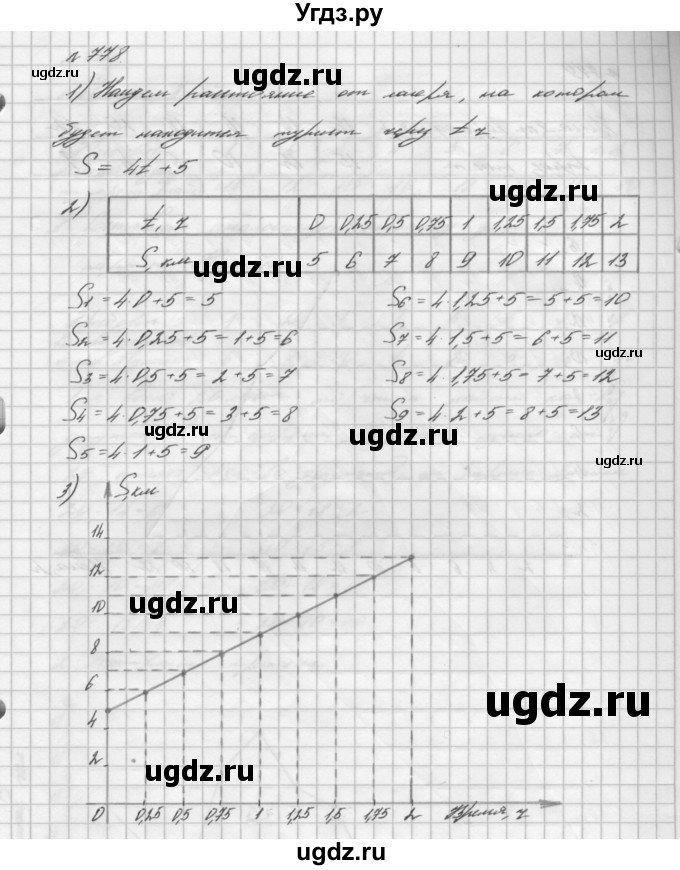 Угдз.ру
n 778.
ugdz.ru
ugdz.ru
ugdz.ru
1) Найдем расстояние от лагеря, на котором
будет находится турист через t ч.
S = 4t + 5
ugdz.ru
2)
t, ч 0 0,25 0,5 0,75 1 1,25 1,5 1,75 2
S, км 5 6 7 8 9 10 11 12 13
ugdz.ru
S1 = 4·0+5 = 5 S6 = 4·1,25+5 = 5+5=10
S2 = 4·0,25+5 = 1+5=6 S7 = 4·1,5+5 = 6+5=11
ugdz.ru
S3 = 4·0,5+5 = 2+5=7 S8 = 4·1,75+5 = 7+5=12
S4 = 4·0,75+5 = 3+5=8 S9 = 4·2+5 = 8+5=13
ugdz.ru
ugdz.ru
S5 = 4·1+5=9
ugdz.ru
3) S, км
14
12
ugdz.ru
10
8
6
ugdz.ru
4
2
ugdz.ru
0 0,25 0,5 0,75 1 1,25 1,5 1,75 2 Время, ч
ugdz.ru